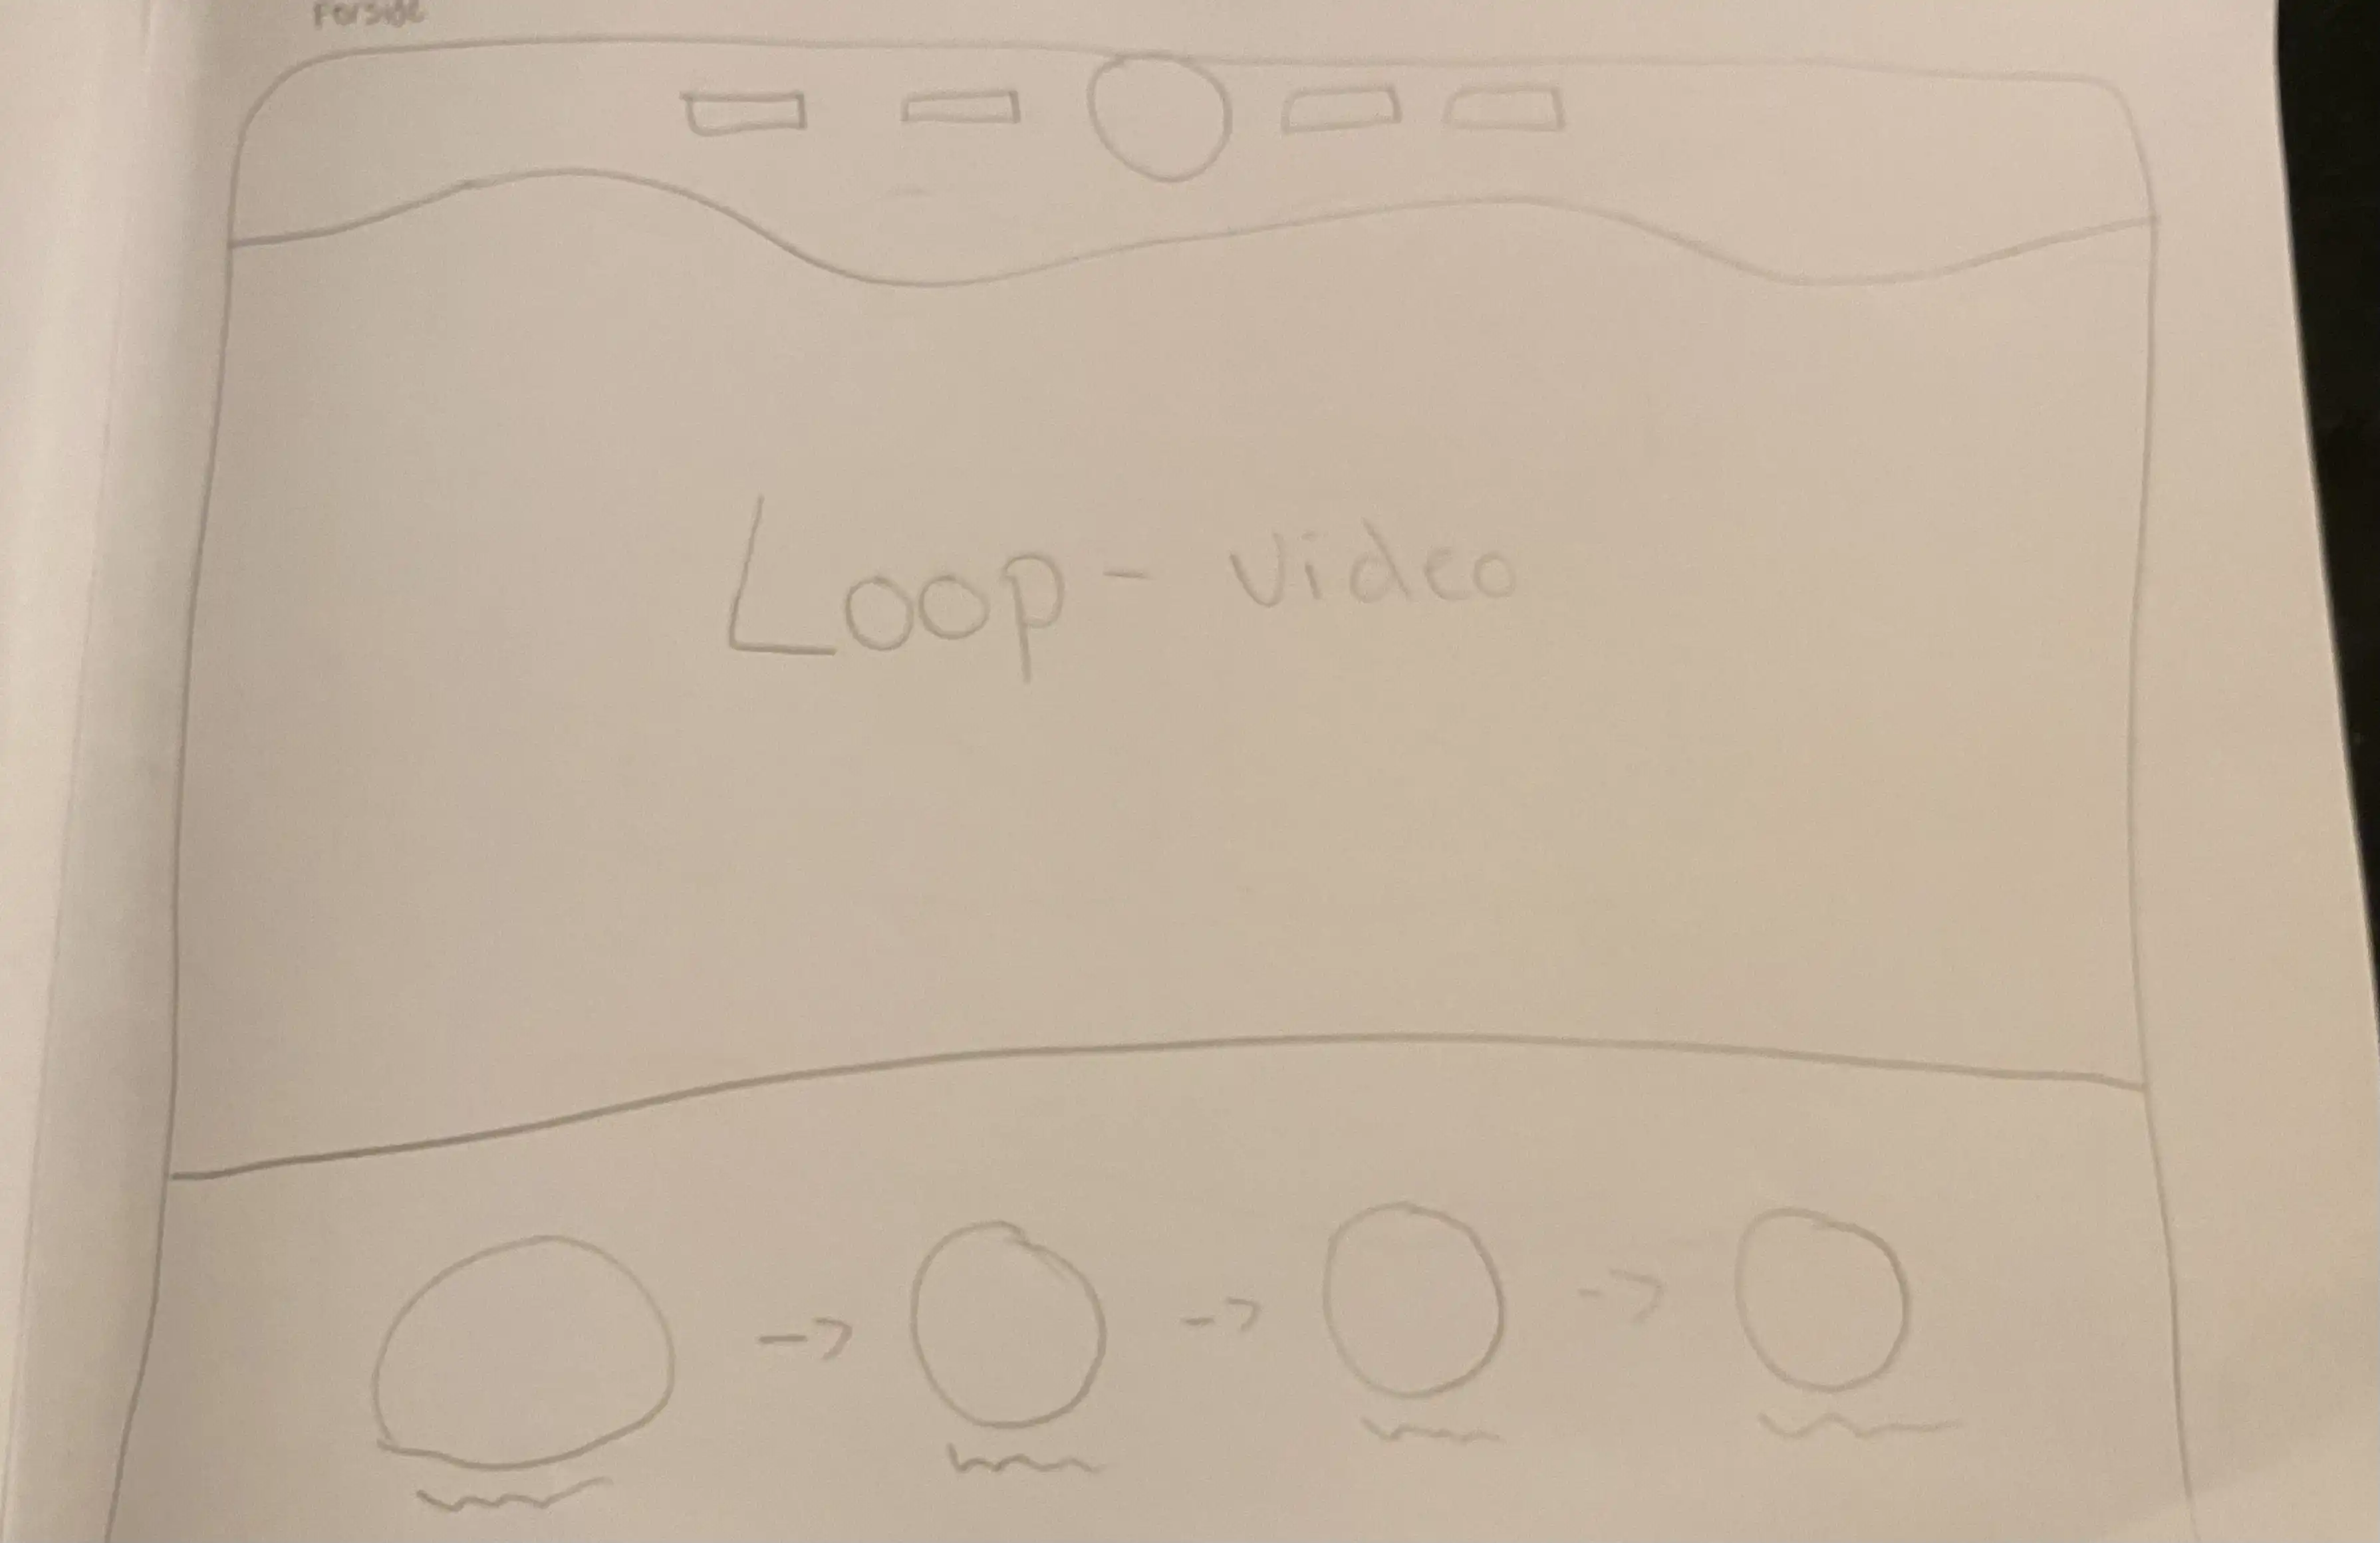 Forside
Loop - video